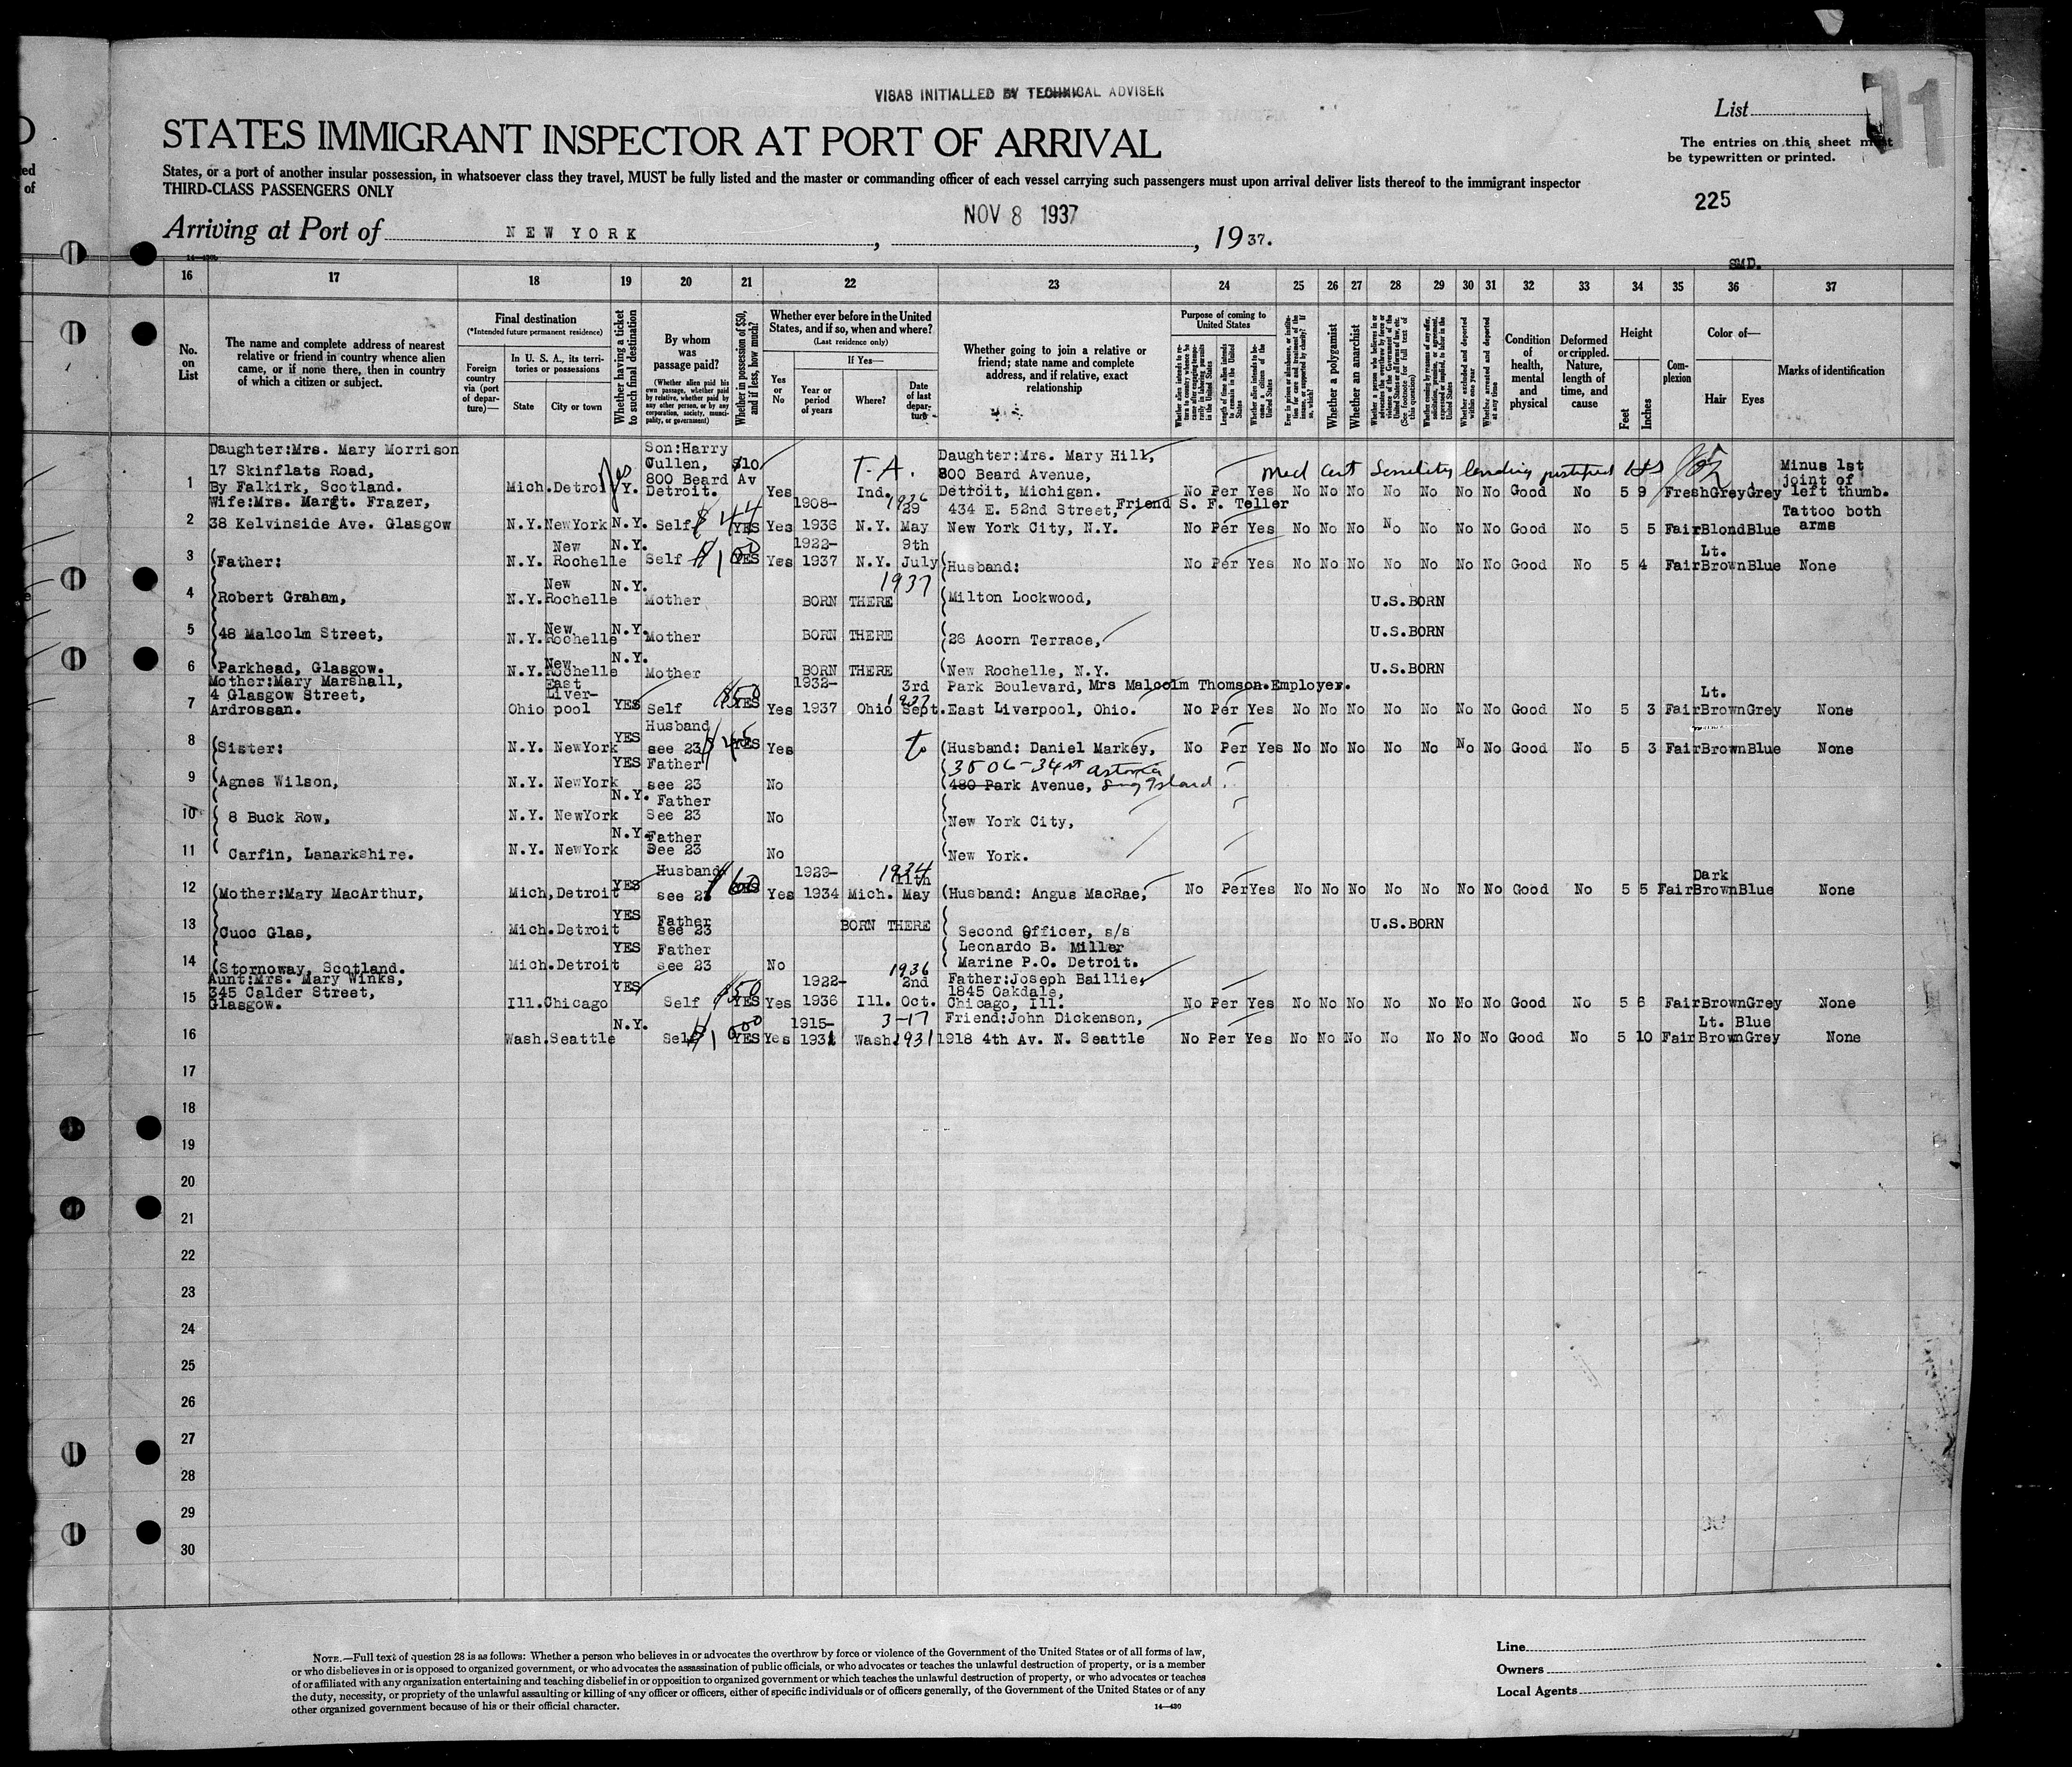 VISAS INITIALLED BY TECHNICAL ADVISER
List
11
STATES IMMIGRANT INSPECTOR AT PORT OF ARRIVAL
The entries on this sheet must
be typewritten or printed.
States, or a port of another insular possession, in whatsoever class they travel, MUST be fully listed and the master or commanding officer of each vessel carrying such passengers must upon arrival deliver lists thereof to the immigrant inspector
THIRD-CLASS PASSENGERS ONLY
225
NOV 8 1937
Arriving at Port of NEW YORK , , 1937.
SMD.
16 17 18 19 20 21 22 23 24 25 26 27 28 29 30 31 32 33 34 35 36 37
No. on List
The name and complete address of nearest relative or friend in country whence alien came, or if none there, then in country of which a citizen or subject.
Final destination
(*Intended future permanent residence)
Foreign country via (port of departure)—
In U. S. A., its territories or possessions
State City or town
Whether having a ticket to such final destination
By whom was passage paid?
(Whether alien paid his own passage, whether paid by relative, whether paid by any other person, or by any corporation, society, municipality, or government)
Whether in possession of $50, and if less, how much?
Whether ever before in the United States, and if so, when and where?
(Last residence only)
Yes or No
If Yes—
Year or period of years
Where?
Date of last departure
Whether going to join a relative or friend; state name and complete address, and if relative, exact relationship
Purpose of coming to United States
Whether alien intends to return to country whence he came after engaging temporarily in laboring pursuits in the United States
Length of time alien intends to remain in the United States
Whether alien intends to become a citizen of the United States
Whether a polygamist
Whether an anarchist
Whether excluded and deported within one year
Whether arrested and deported at any time
Condition of health, mental and physical
Deformed or crippled. Nature, length of time, and cause
Height
Feet Inches
Complexion
Color of—
Hair Eyes
Marks of identification
1 Daughter:Mrs. Mary Morrison
17 Skinflats Road,
By Falkirk, Scotland.
Mich. Detroit Yes N.Y. Son:Harry Cullen, 800 Beard Av Detroit. $10 Yes T-A. Ind. Daughter:Mrs. Mary Hill, 800 Beard Avenue, Detroit, Michigan. No Per Yes No No No No No No No Good No 5 9 Fresh Grey Grey Minus 1st joint of left thumb.
Med Cert Senility landing justified
2 Wife:Mrs. Margt. Frazer,
38 Kelvinside Ave. Glasgow N.Y. NewYork N.Y. Self $44 YES Yes 1908-1936 N.Y. 1936 29 May 434 E. 52nd Street, Friend S. F. Teller New York City, N.Y. No Per Yes No No No No No No No Good No 5 5 Fair Blond Blue Tattoo both arms
3 (Father: N.Y. New Rochelle N.Y. Self $100 YES Yes 1922-1937 N.Y. 9th July 1937 (Husband: No Per Yes No No No No No No No Good No 5 4 Fair Lt. Brown Blue None
4 (Robert Graham, N.Y. New Rochelle N.Y. Mother BORN THERE (Milton Lockwood, U.S.BORN
5 (48 Malcolm Street, N.Y. New Rochelle N.Y. Mother BORN THERE (26 Acorn Terrace, U.S.BORN
6 (Parkhead, Glasgow. N.Y. New Rochelle N.Y. Mother BORN THERE (New Rochelle, N.Y. U.S.BORN
7 Mother:Mary Marshall,
4 Glasgow Street,
Ardrossan. Ohio East Liverpool YES Self $50 YES Yes 1932-1937 Ohio 3rd Sept. 1937 Park Boulevard, Mrs Malcolm Thomson.Employer. East Liverpool, Ohio. No Per Yes No No No No No No No Good No 5 3 Fair Lt. Brown Grey None
8 (Sister: N.Y. NewYork YES Husband see 23 $45 YES Yes to (Husband: Daniel Markey, No Per Yes No No No No No No No Good No 5 3 Fair Brown Blue None
9 (Agnes Wilson, N.Y. NewYork YES Father see 23 No (3506-34 st Astoria (480 Park Avenue, Long Island
10 (8 Buck Row, N.Y. NewYork N.Y. Father See 23 No (New York City,
11 (Carfin, Lanarkshire. N.Y. NewYork N.Y. Father See 23 No (New York.
12 (Mother:Mary MacArthur, Mich, Detroit YES Husband see 23 $60 YES Yes 1929-1934 Mich. 1934 11th May (Husband: Angus MacRae, No Per Yes No No No No No No No Good No 5 5 Fair Dark Brown Blue None
13 (Cuoc Glas, Mich. Detroit YES Father see 23 BORN THERE (Second Officer, s/s Leonardo B. Miller U.S.BORN
14 (Stornoway, Scotland. Mich. Detroit YES Father see 23 No (Marine P.O. Detroit.
15 Aunt:Mrs. Mary Winks,
345 Calder Street,
Glasgow. Ill. Chicago YES Self $50 YES Yes 1922-1936 Ill. 1936 2nd Oct. Father:Joseph Baillie, 1845 Oakdale, Chicago, Ill. No Per Yes No No No No No No No Good No 5 6 Fair Brown Grey None
16 Wash. Seattle N.Y. Self $1000 YES Yes 1915-1931 Wash. 3-17 1931 Friend:John Dickenson, 1918 4th Av. N. Seattle No Per Yes No No No No No No No Good No 5 10 Fair Lt. Brown Blue Grey None
17
18
19
20
21
22
23
24
25
26
27
28
29
30
NOTE.—Full text of question 28 is as follows: Whether a person who believes in or advocates the overthrow by force or violence of the Government of the United States or of all forms of law,
or who disbelieves in or is opposed to organized government, or who advocates the assassination of public officials, or who advocates or teaches the unlawful destruction of property, or is a member
of or affiliated with any organization entertaining and teaching disbelief in or opposition to organized government or which teaches the unlawful destruction of property, or who advocates or teaches
the duty, necessity, or propriety of the unlawful assaulting or killing of any officer or officers, either of specific individuals or of officers generally, of the Government of the United States or of any
other organized government because of his or their official character.
14—430
Line
Owners
Local Agents